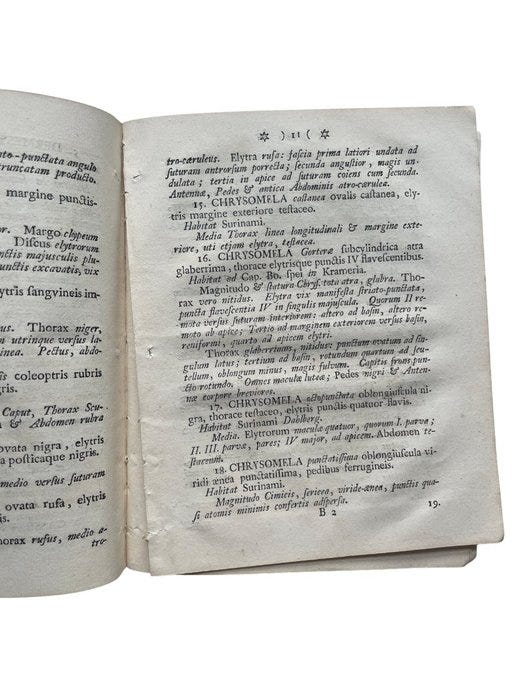 to-punctata angulo
truncatam producto.
margine punctis-
or. Margo clypeum
Discus elytrorum
nctis majusculis plu-
punctis excavatis, vix
elytris sanguineis im-
us. Thorax niger,
m utrinque versus la-
inea. Pectus, abdo-
coleoptris rubris
nigris.
Caput, Thorax Scu-
& Abdomen rubra
ovata nigra, elytris
posticaque nigris.
medio versus suturam
ovata rufa, elytris
horax rufus, medio a-
tro-
✡ ) 11 ( ✡
tro-cæruleus. Elytra rufa: fascia prima latiori undata ad
suturam antrorsum porrecta; secunda angustior, magis un-
dulata; tertia in apice ad suturam coiens cum secunda.
Antennæ, Pedes & antica Abdominis atro-cærulea.
15. CHRYSOMELA castanea ovalis castanea, ely-
tris margine exteriore testaceo.
Habitat Surinami.
Media Thorax linea longitudinali & margine exte-
riore, uti etjam elytra, testacea.
16. CHRYSOMELA Gorteræ subcylindrica atra
glaberrima, thorace elytrisque punctis IV flavescentibus.
Habitat ad Cap. Bo. spei in Krameria.
Magnitudo & statura Chrys. tota atra, glabra. Tho-
rax vero nitidus. Elytra vix manifesta striato-punctata,
puncta flavescentia IV in singulis majuscula. Quorum II re-
mota versus suturam interiorem: altero ad basin, altero re-
moto ab apice; Tertio ad marginem exteriorem versus basin,
reniformi, quarto ad apicem elytri.
Thorax glaberrimus, nitidus: punctum ovatum ad sin-
gulum latus; tertium ad basin, rotundum quartum ad scu-
tellum, oblongum minus, magis fulvum. Capitis frons pun-
cto rotundo. Omnes macula luteæ; Pedes nigri & Anten-
næ corpore breviores.
17. CHRYSOMELA octopunctata oblongiuscula ni-
gra, thorace testaceo, elytris punctis quatuor flavis.
Habitat Surinami Dahlberg.
Media. Elytrorum macula quatuor, quorum I. parva;
II. III. parvæ, pares; IV major, ad apicem. Abdomen te-
staceum.
18. CHRYSOMELA punctatissima oblongiuscula vi-
ridi ænea punctatissima, pedibus ferrugineis.
Habitat Surinami.
Magnitudo Cimicis, sericea, viride-ænea, punctis qua-
si atomis minimis confertis adspersa.
B 2
19.